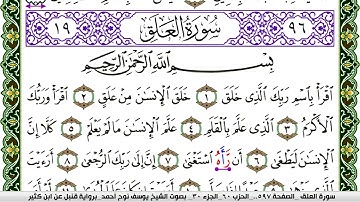 ٩٦ سُورَةُ الْعَلَقِ ١٩
بِسْمِ اللَّهِ الرَّحْمَٰنِ الرَّحِيمِ
اقْرَأْ بِاسْمِ رَبِّكَ الَّذِي خَلَقَ ١ خَلَقَ الْإِنسَٰنَ مِنْ عَلَقٍ ٢ اقْرَأْ وَرَبُّكَ
الْأَكْرَمُ ٣ الَّذِي عَلَّمَ بِالْقَلَمِ ٤ عَلَّمَ الْإِنسَٰنَ مَا لَمْ يَعْلَمْ ٥ كَلَّا إِنَّ
الْإِنسَٰنَ لَيَطْغَىٰ ٦ أَن رَّأَهُ اسْتَغْنَىٰ ٧ إِنَّ إِلَىٰ رَبِّكَ الرُّجْعَىٰ ٨ أَرَءَيْتَ
سورة العلق الصفحة ٥٩٧... الحزب ٦٠... الجزء ٣٠ بصوت الشيخ يوسف نوح أحمد برواية قنبل عن ابن كثير